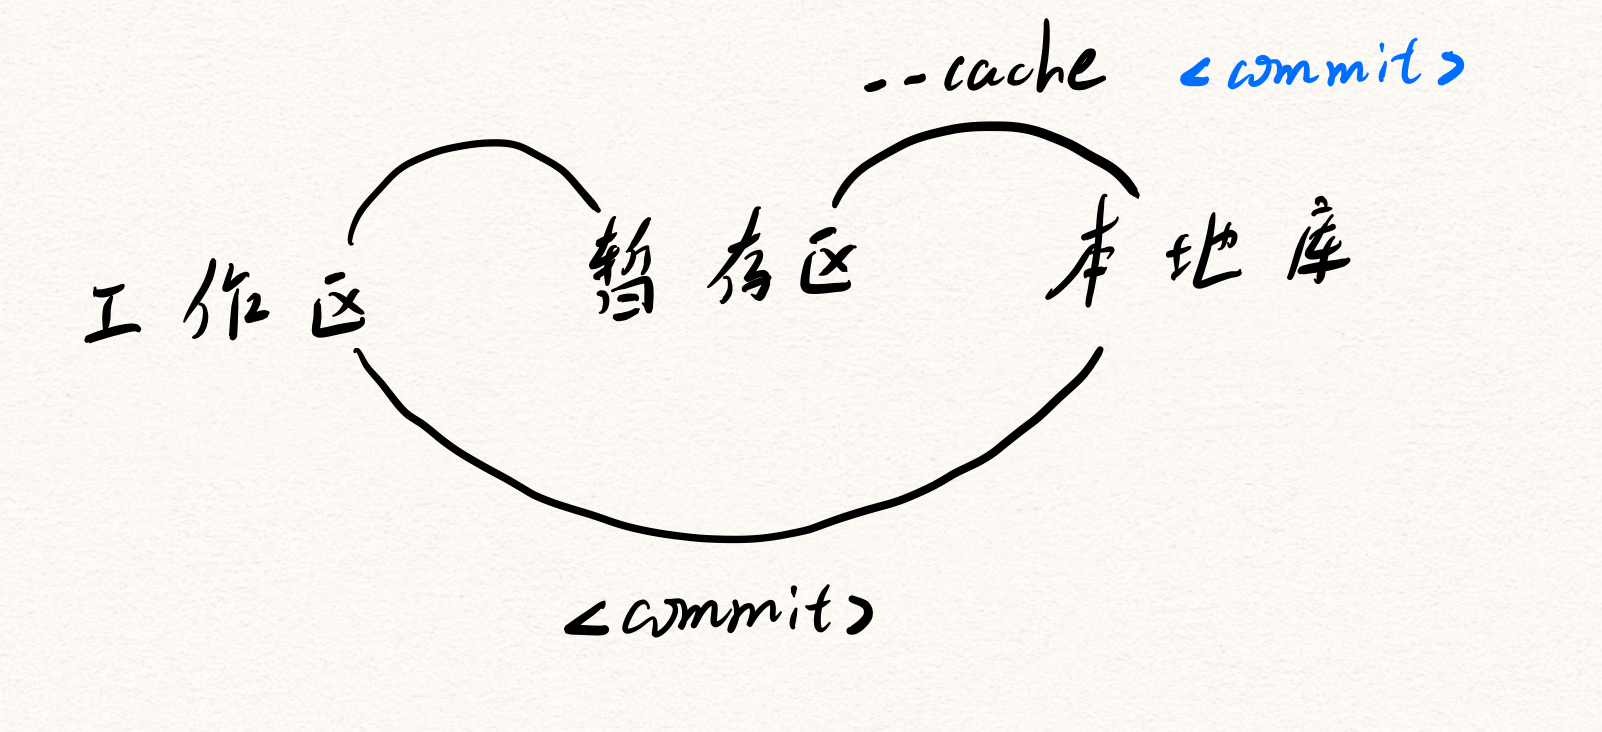 --cache <commit>
工作区 暂存区 本地库
<commit>